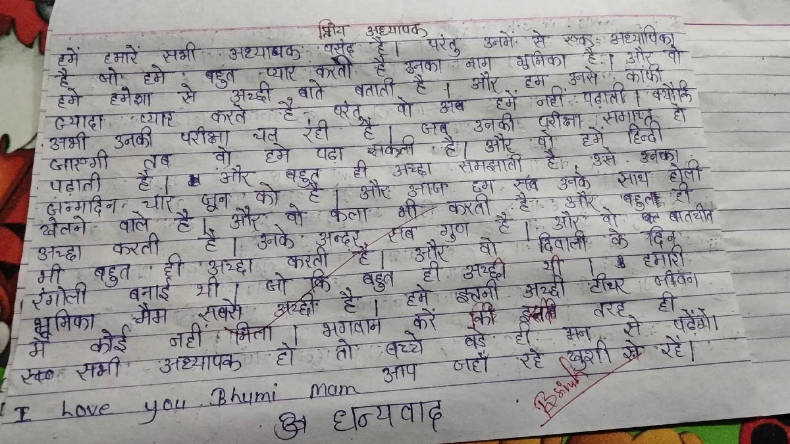 प्रिय अध्यापक
हमें हमारें सभी अध्यापक पसंद है। परंतु उनमें से एक अध्यापिका
है जो हमे बहुत प्यार करती है उनका नाम भुमिका है। और वो
हमे हमेशा से अच्छी बाते बताती है। और हम उनसे काफी
ज्यादा प्यार करते है परंतु वो अब हमें नहीं पढ़ाती। क्योंकि
अभी उनकी परीक्षा चल रंही है। जब उनकी परीक्षा समाप्त हो
जाएगी तब वो हमे पढा सकती है। और वो हमें हिन्दी
पढ़ाती है। और बहुत ही अच्छा समझाती है। उसे उनका
जन्मदिन चार जून को है। और आज हम सब उनके साथ होली
खेलने वाले है। और वो कला भी करती है और बहुत ही
अच्छा करती है। उनके अन्दर सब गुण है। और वो बातचीत
भी बहुत ही अच्छा करती है। और वो दिवाली के दिन
रंगोली बनाई थी। जो कि बहुत ही अच्छी थी। हमारी
भूमिका मैम सबसे अच्छी है। हमे इतनी अच्छी टीचर जीवन
में कोई नहीं मिला। भगवान करें की इसी तरह ही
सभी अध्यापक हो तो बच्चे बड़े ही मन से पढ़ेंगे।
आप जहाँ रहे खुशी से रहे।
I Love you Bhumi Mam
धन्यवाद